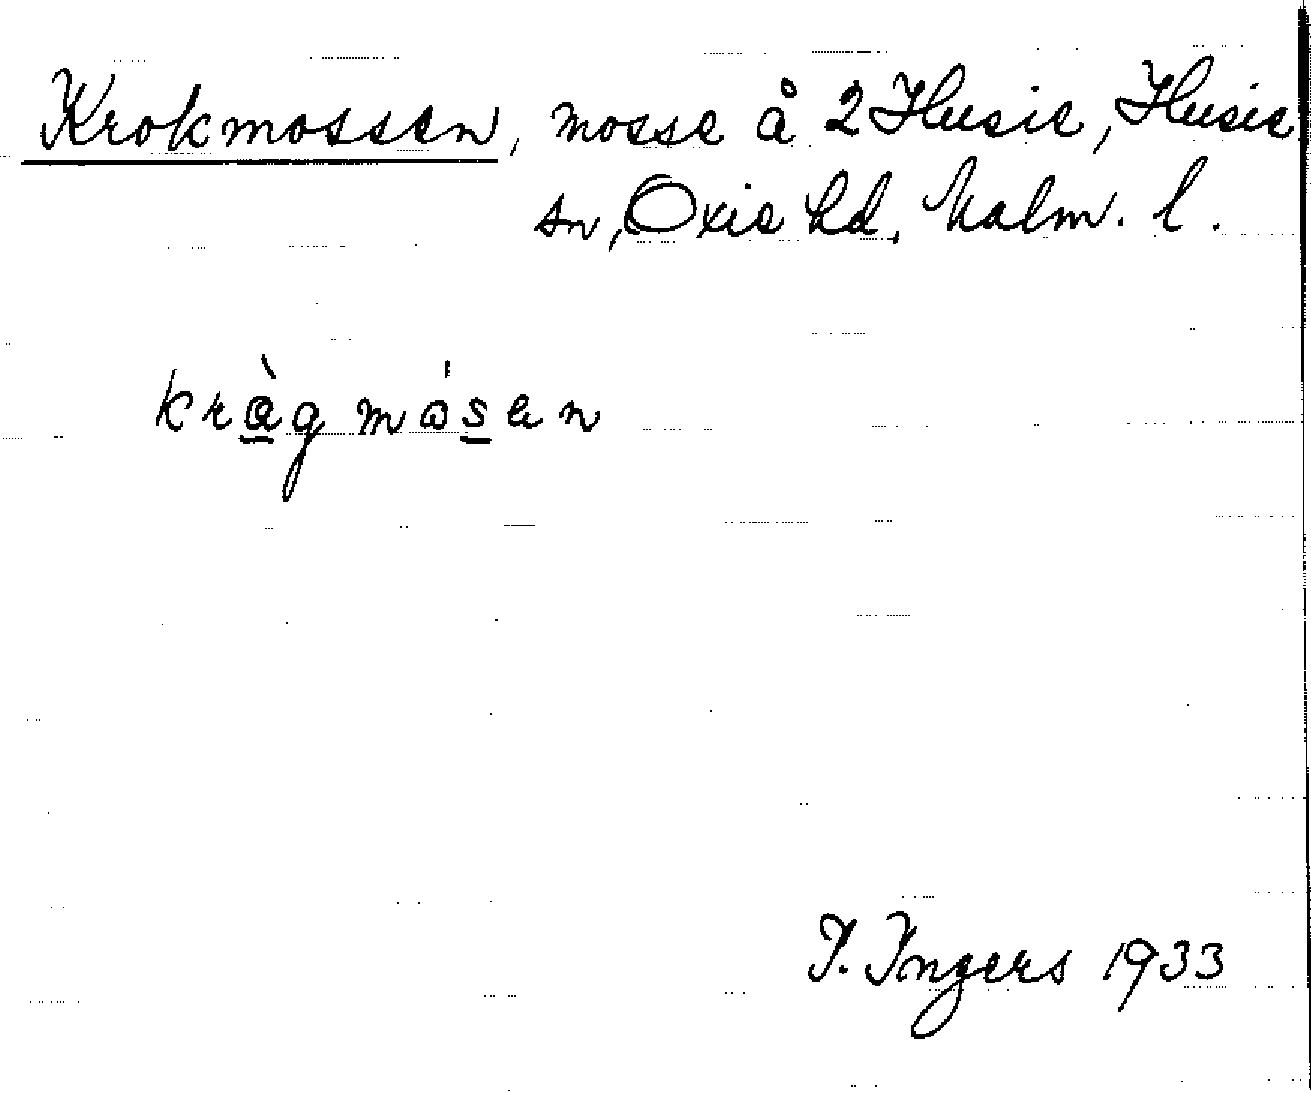 Krokmossen, mosse å 2 Husie, Husie
sn, Oxie hd, Malm. l.
kràg mósen
I. Ingers 1933